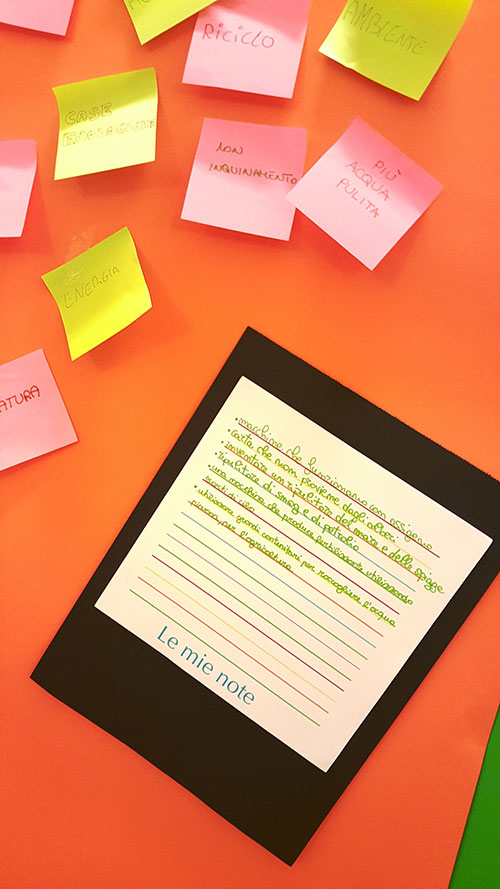 RICICLO
AMBIENTE
CASE
NON
INQUINAMENTO
PIÙ
ACQUA
PULITA
ENERGIA
ATURA
• macchine che funzionano con ossigeno
• carta che non proviene dagli alberi
• inventare un ripulitore del mare e delle spiagge
• ripulitore di smog e di petrolio
• una macchina che produce fertilizzante utilizzando
scarti di cibo
• utilizzare grandi contenitori per raccogliere l'acqua
piovana per l'agricoltura
Le mie note